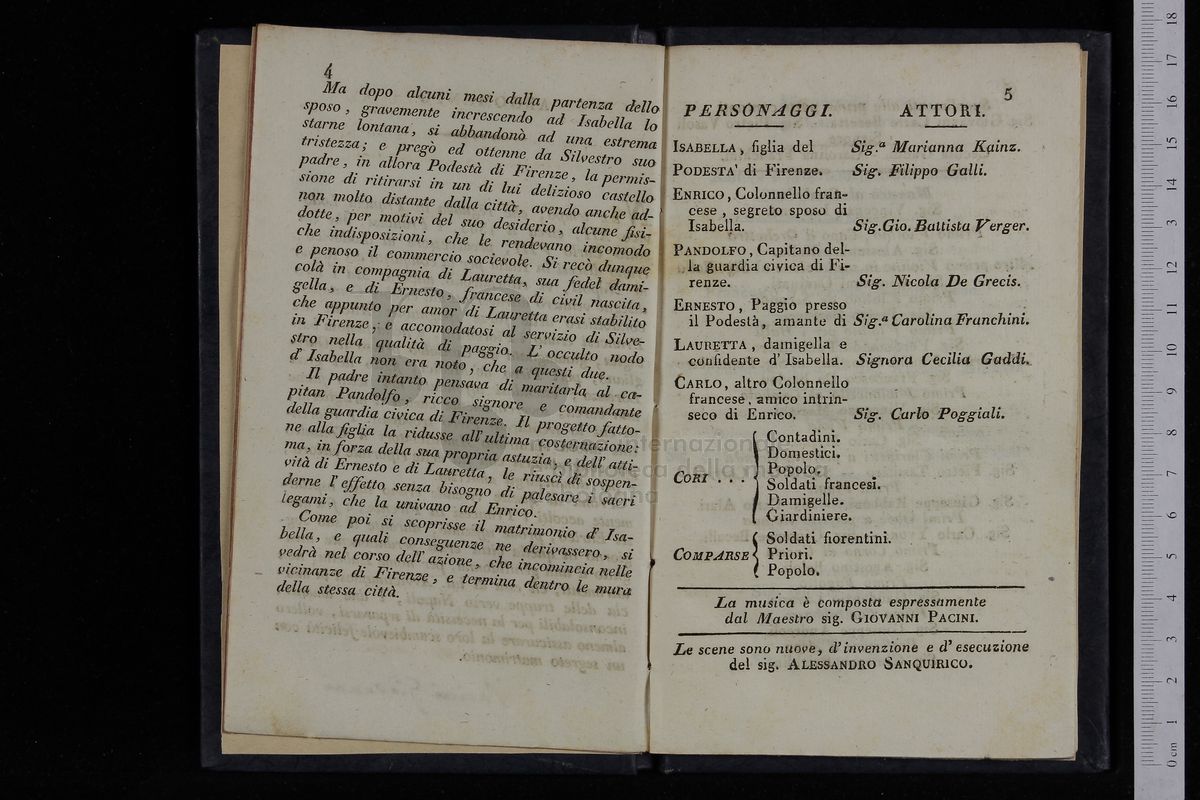 4
Ma dopo alcuni mesi dalla partenza dello
sposo, gravemente increscendo ad Isabella lo
starne lontana, si abbandonò ad una estrema
tristezza; e pregò ed ottenne da Silvestro suo
padre, in allora Podestà di Firenze, la permis-
sione di ritirarsi in un di lui delizioso castello
non molto distante dalla città, avendo anche ad-
dotte, per motivi del suo desiderio, alcune fisi-
che indisposizioni, che le rendevano incomodo
e penoso il commercio socievole. Si recò dunque
colà in compagnia di Lauretta, sua fedel dami-
gella, e di Ernesto, francese di civil nascita,
che appunto per amor di Lauretta erasi stabilito
in Firenze, e accomodatosi al servizio di Silve-
stro nella qualità di paggio. L'occulto nodo
d'Isabella non era noto, che a questi due.
Il padre intanto pensava di maritarla al ca-
pitan Pandolfo, ricco signore e comandante
della guardia civica di Firenze. Il progetto fatto-
ne alla figlia la ridusse all'ultima costernazione:
ma, in forza della sua propria astuzia, e dell'atti-
vità di Ernesto e di Lauretta, le riuscì di sospen-
derne l'effetto senza bisogno di palesare i sacri
legami, che la univano ad Enrico.
Come poi si scoprisse il matrimonio d'Isa-
bella, e quali conseguenze ne derivassero, si
vedrà nel corso dell'azione, che incomincia nelle
vicinanze di Firenze, e termina dentro le mura
della stessa città.
5
PERSONAGGI. ATTORI.
ISABELLA, figlia del Sig.ª Marianna Kainz.
PODESTA' di Firenze. Sig. Filippo Galli.
ENRICO, Colonnello fran-
cese, segreto sposo di
Isabella. Sig. Gio. Battista Verger.
PANDOLFO, Capitano del-
la guardia civica di Fi-
renze. Sig. Nicola De Grecis.
ERNESTO, Paggio presso
il Podestà, amante di Sig.ª Carolina Franchini.
LAURETTA, damigella e
confidente d'Isabella. Signora Cecilia Gaddi.
CARLO, altro Colonnello
francese, amico intrin-
seco di Enrico. Sig. Carlo Poggiali.
Contadini.
Domestici.
Popolo.
CORI . . . Soldati francesi.
Damigelle.
Giardiniere.
Soldati fiorentini.
COMPARSE Priori.
Popolo.
La musica è composta espressamente
dal Maestro sig. GIOVANNI PACINI.
Le scene sono nuove, d'invenzione e d'esecuzione
del sig. ALESSANDRO SANQUIRICO.
0 cm 1 2 3 4 5 6 7 8 9 10 11 12 13 14 15 16 17 18